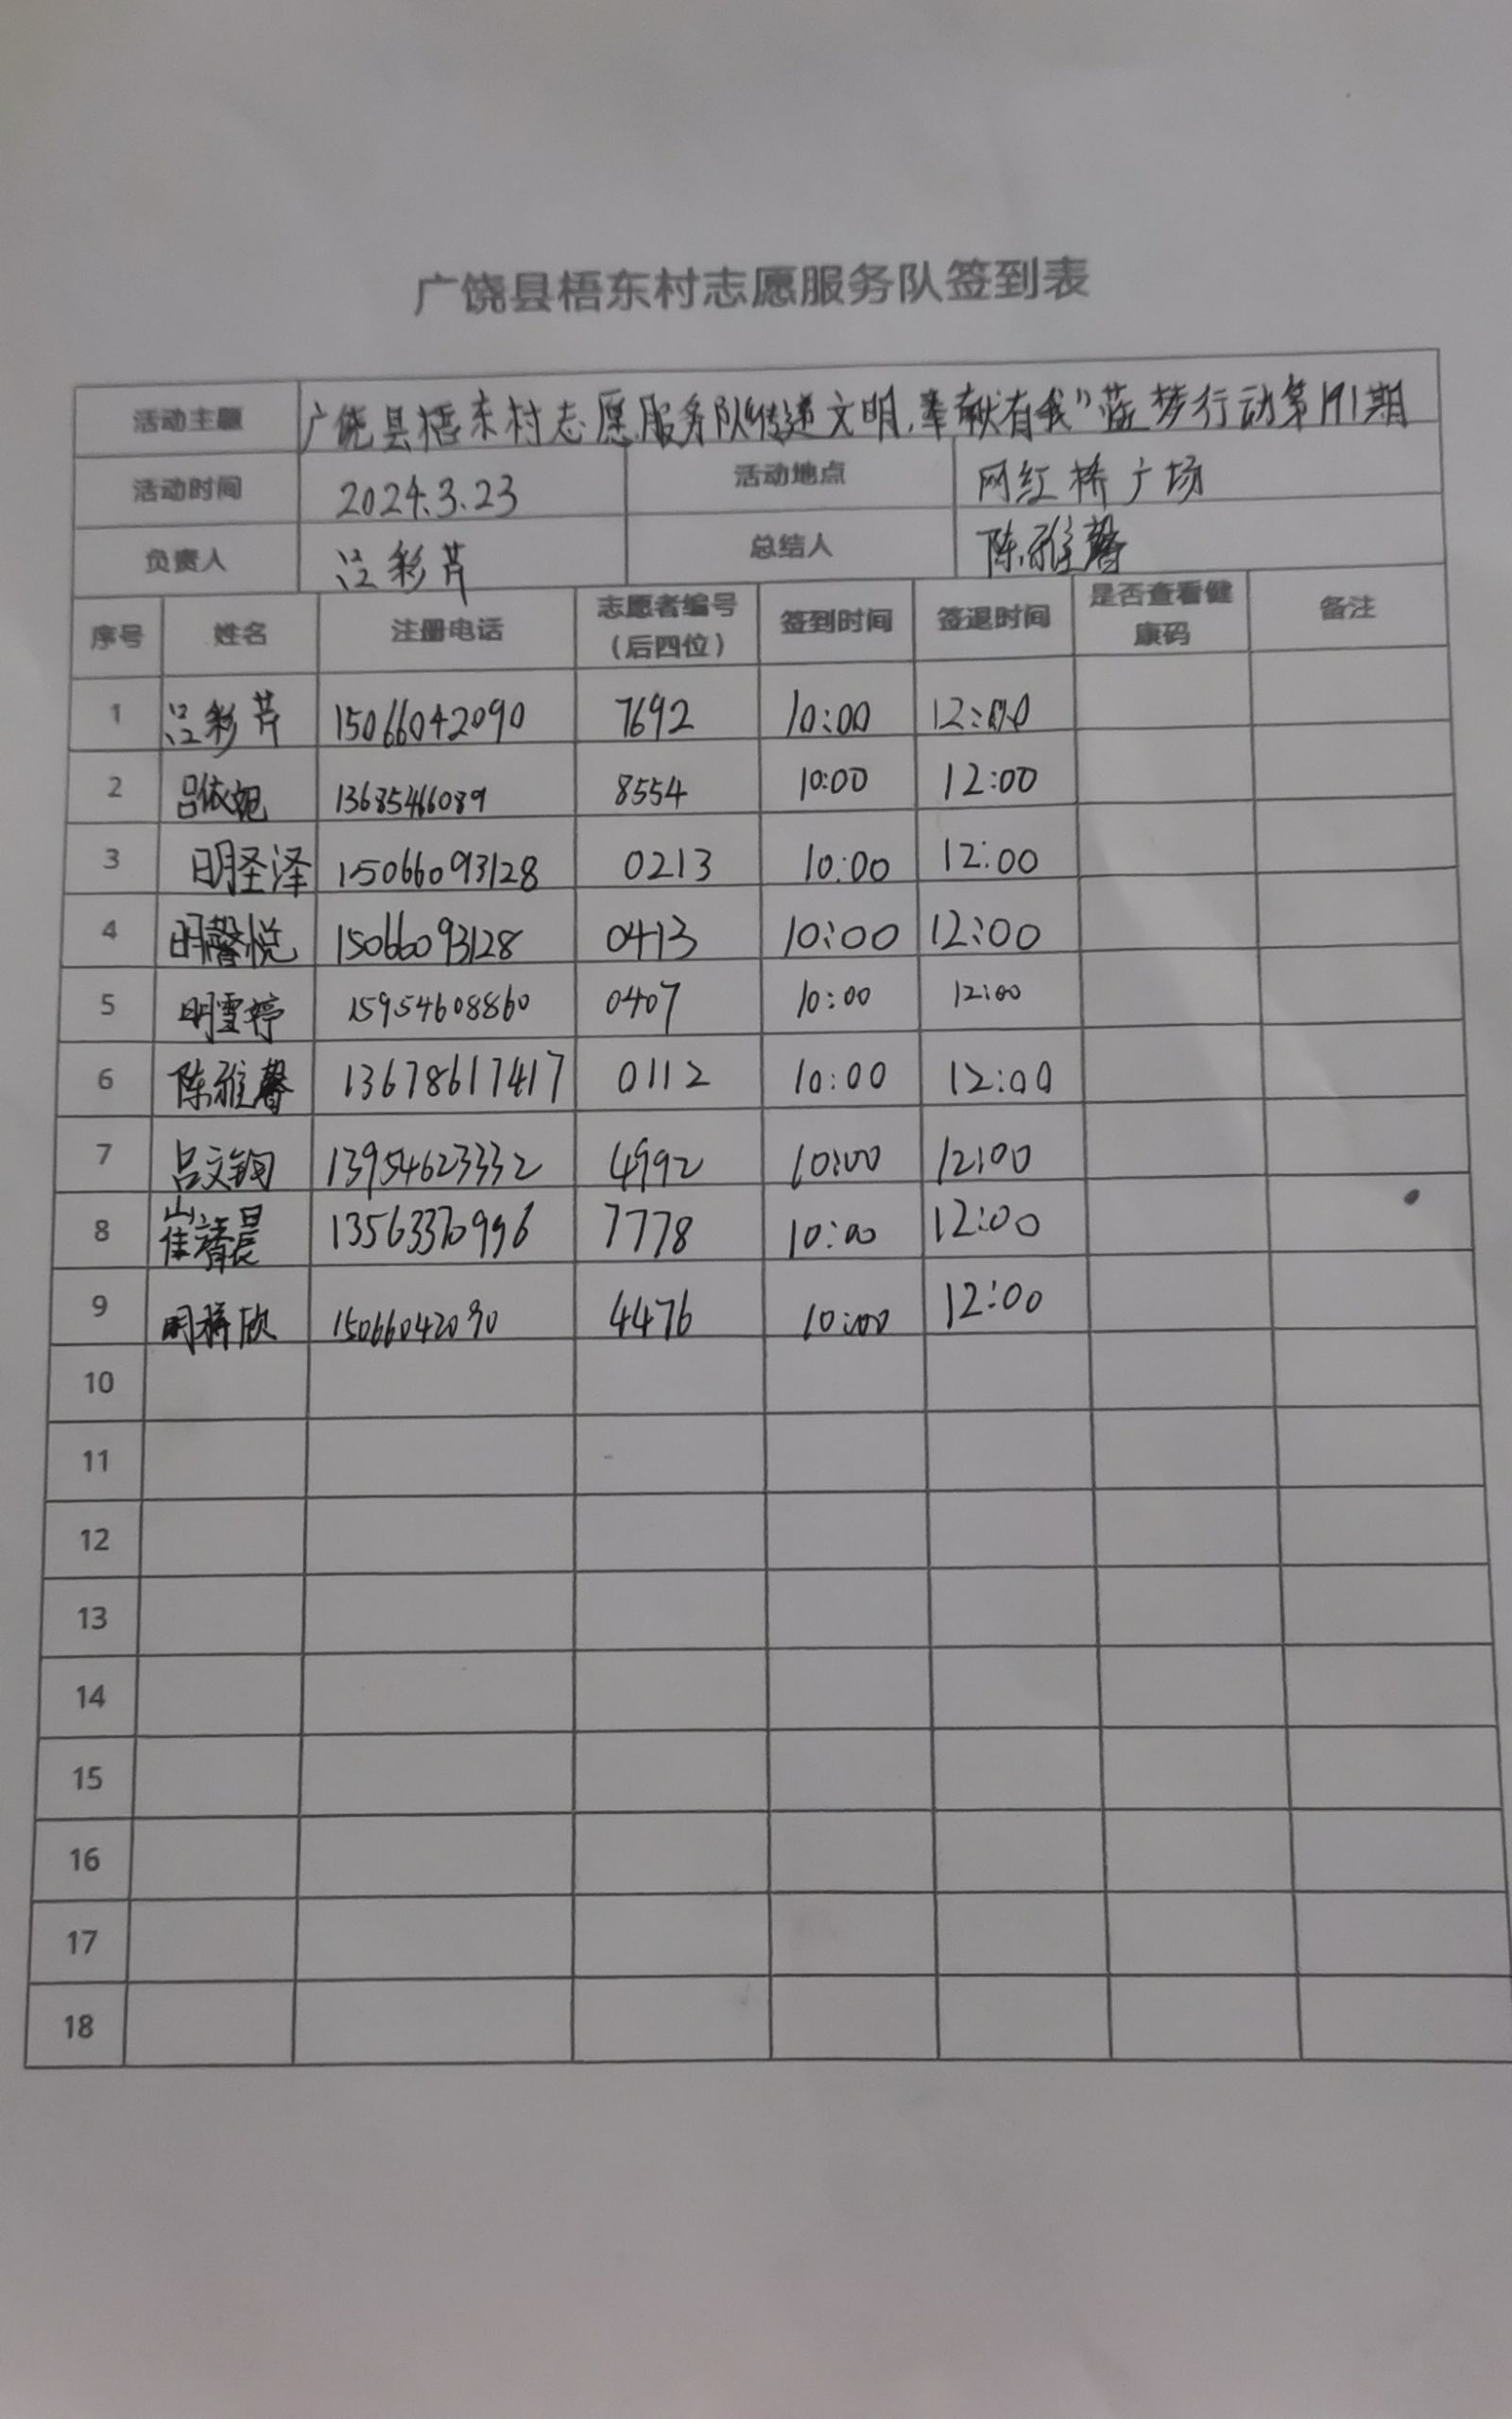 广饶县梧东村志愿服务队签到表
活动主题 广饶县梧东村志愿服务队“传递文明,奉献有我”蓝梦行动第191期
活动时间 2024.3.23 活动地点 网红桥广场
负责人 彩芹 总结人 陈雅馨
序号 姓名 注册电话 志愿者编号（后四位） 签到时间 签退时间 是否查看健康码 备注
1 彩芹 15066042090 7692 10:00 12:00
2 吕依妮 13685466089 8554 10:00 12:00
3 明圣泽 15066093128 0213 10:00 12:00
4 明馨悦 15066093128 0413 10:00 12:00
5 明雪婷 15954608860 0407 10:00 12:00
6 陈雅馨 13678617417 0112 10:00 12:00
7 吕文 13954623332 4992 10:00 12:00
8 崔晨 13563370996 7778 10:00 12:00
9 明梓欣 15066042090 4476 10:00 12:00
10
11
12
13
14
15
16
17
18